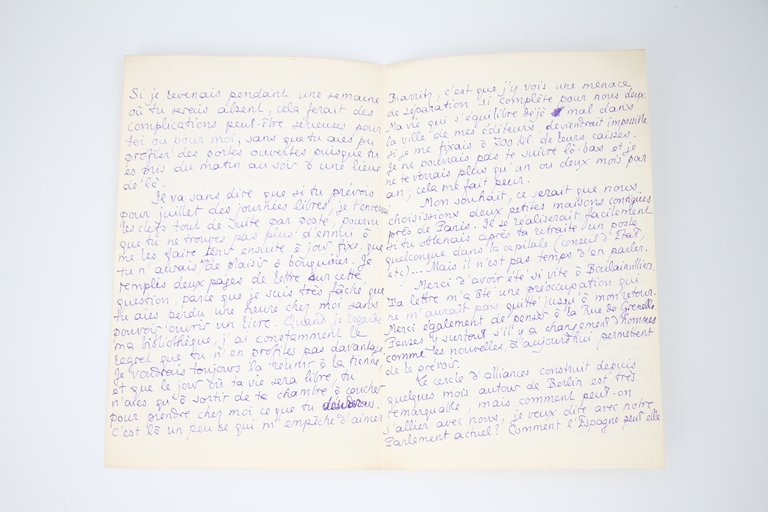 Si je revenais pendant une semaine
où tu serais absent, cela ferait des
complications peut-être sérieuses pour
toi ou pour moi, sans que tu aies pu
profiter des portes ouvertes puisque tu
es pris du matin au soir à une lieue
de là.
Il va sans dire que si tu prévois
pour juillet des journées libres, je t'enverrai
les clefs tout de suite par poste, pourvu
que tu ne trouves pas plus d'ennui à
me les faire tenir ensuite à jour fixe, que
tu n'aurais eu de plaisir à bouquiner. Je
remplis deux pages de lettre sur cette
question, parce que je suis très fâché que
tu aies perdu une heure chez moi sans
pouvoir ouvrir un livre. Quand je regarde
ma bibliothèque, j'ai constamment le
regret que tu n'en profites pas davantage.
Je voudrais toujours la réunir à la tienne
et que le jour où ta vie sera libre, tu
n'aies qu'à sortir de ta chambre à coucher
pour prendre chez moi ce que tu
C'est là un peu ce qui m'empêche d'aimer
Biarritz, c'est que j'y vois une menace
de séparation si complète pour nous deux.
Ma vie qui s'équilibre déjà mal dans
la ville de mes éditeurs, deviendrait impossible
si je me fixais à 700 kil. de leurs caisses.
Je ne pourrais pas te suivre là-bas et je
ne te verrais plus qu'un ou deux mois par
an ; cela me fait peur.
Mon souhait, ce serait que nous
choisissions deux petites maisons contiguës
près de Paris. Il se réaliserait facilement
si tu obtenais après ta retraite un poste
quelconque dans la capitale (conseil d'Etat,
etc)... Mais il n'est pas temps d'en parler.
Merci d'avoir été si vite à Boulainvilliers.
Ta lettre m'a ôté une préoccupation qui
ne m'aurait pas quitté jusqu'à mon retour.
Merci également de penser à la rue de Grenelle.
Penses-y surtout s'il y a changement d'hommes
comme les nouvelles d'aujourd'hui permettent
de le prévoir.
Le cercle d'alliances construit depuis
quelques mois autour de Berlin est très
remarquable ; mais comment peut-on
s'allier avec nous, je veux dire avec notre
Parlement actuel ? Comment l'Espagne peut-elle